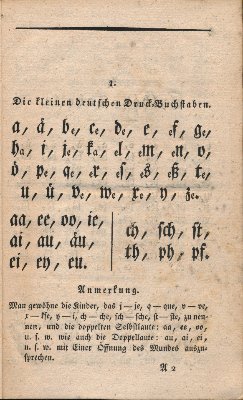 1.
Die kleinen deutschen Druck-Buchstaben.
a, ä, be, ce, de, e, ef, ge,
ha, i, je, ka, el, em, en, o,
ö, pe, qe, er, es, es, eßt, te,
u, ü, ve, we, xe, y, ze.
aa, ee, oo, ie,
ai, au, äu,
ei, ey, eu.
ch, sch, st,
th, ph, pf.
Anmerkung.
Man gewöhne die Kinder, das j—je, q—que, v—ve,
x—kse, y—i, ch—che, sch—sche, st—ste, zu nen-
nen, und die doppelten Selbstlaute: aa, ee, oo,
u. s. w. wie auch die Doppellaute: au, ai, ei,
u. s. w. mit Einer Öffnung des Mundes auszu-
sprechen.
A 2